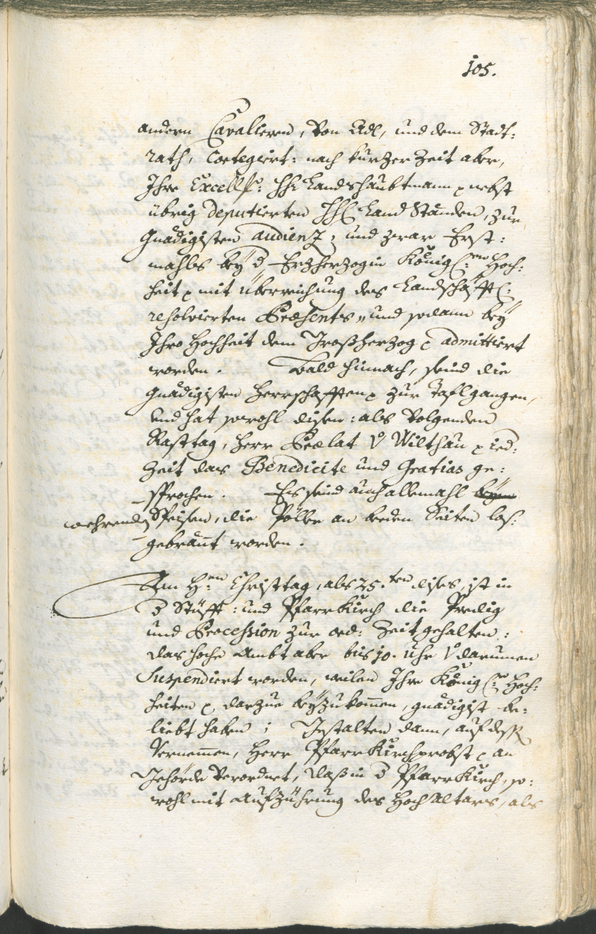 105.
andern Cavalieren, von Adl, und dem Statt:
rath, Cortegiert: nach kurzer Zeit aber,
Ihre Excell: H: Landtshaubtmann nebst
übrig deputierten HH Land Ständen, zur
Gnädigisten audienz, und zwar Erst:
mahls bey d Erzherzogin König: Hoch:
heit mit überreichung des Landschafft:
resolvierten Præsents, und sodann bey
Ihro Hochheit dem Großherzog admittiert
worden. Bald hinnach, seind die
Gnädigisten Herrschafften zur Tafl gangen,
und hat sowohl disen: als volgenden
Rasttag, Herr Prælat v Wilthau ied:
Zeit das Benedicite und Gratias ge:
sprochen. Es seind auch allemahl
wehrend Speisen, die Pöller an beden Seiten los:
gebrant worden.
Am H: Christtag, als 25.ten dises, ist in
d Stüfft: und PfarrKirch die Predig
und Procession zur ord: Zeit gehalten:
das hoche Ambt aber bis 10. Uhr darumen
Suspendiert worden, weilen Ihre König: Hoch:
heiten darzue beyzukomen, gnädigist be:
liebt haben; Gestalten dann, auf dess
Vernemmen, Herr PfarrKirchprobst an
Gehörde verordnet, dass in d PfarrKirch, so:
wohl mit Aufzührung des HochAltars, als